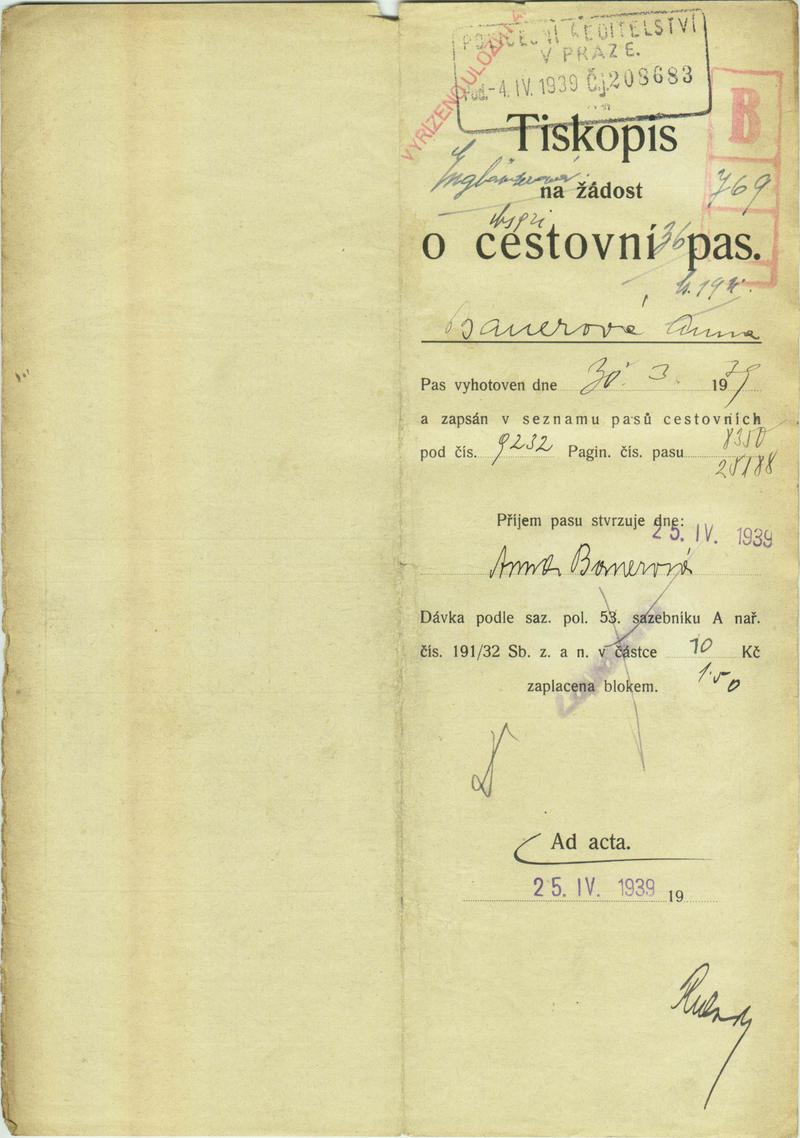 POLICEJNÍ ŘEDITELSTVÍ
V PRAZE.
Pod. -4. IV. 1939 Čj. 208683
VYŘÍZENO ULOŽENA
B
Tiskopis
na žádost
769
o cestovní pas.
36
Bauerová Anna
Pas vyhotoven dne 30. 3. 1939
a zapsán v seznamu pasů cestovních
pod čís. 9232 Pagin. čís. pasu 8350
28188
Příjem pasu stvrzuje dne:
25. IV. 1939
Anna Bauerová
Dávka podle saz. pol. 53. sazebníku A nař.
čís. 191/32 Sb. z. a n. v částce 10 Kč
1.50
zaplacena blokem.
Ad acta.
25. IV. 1939 19